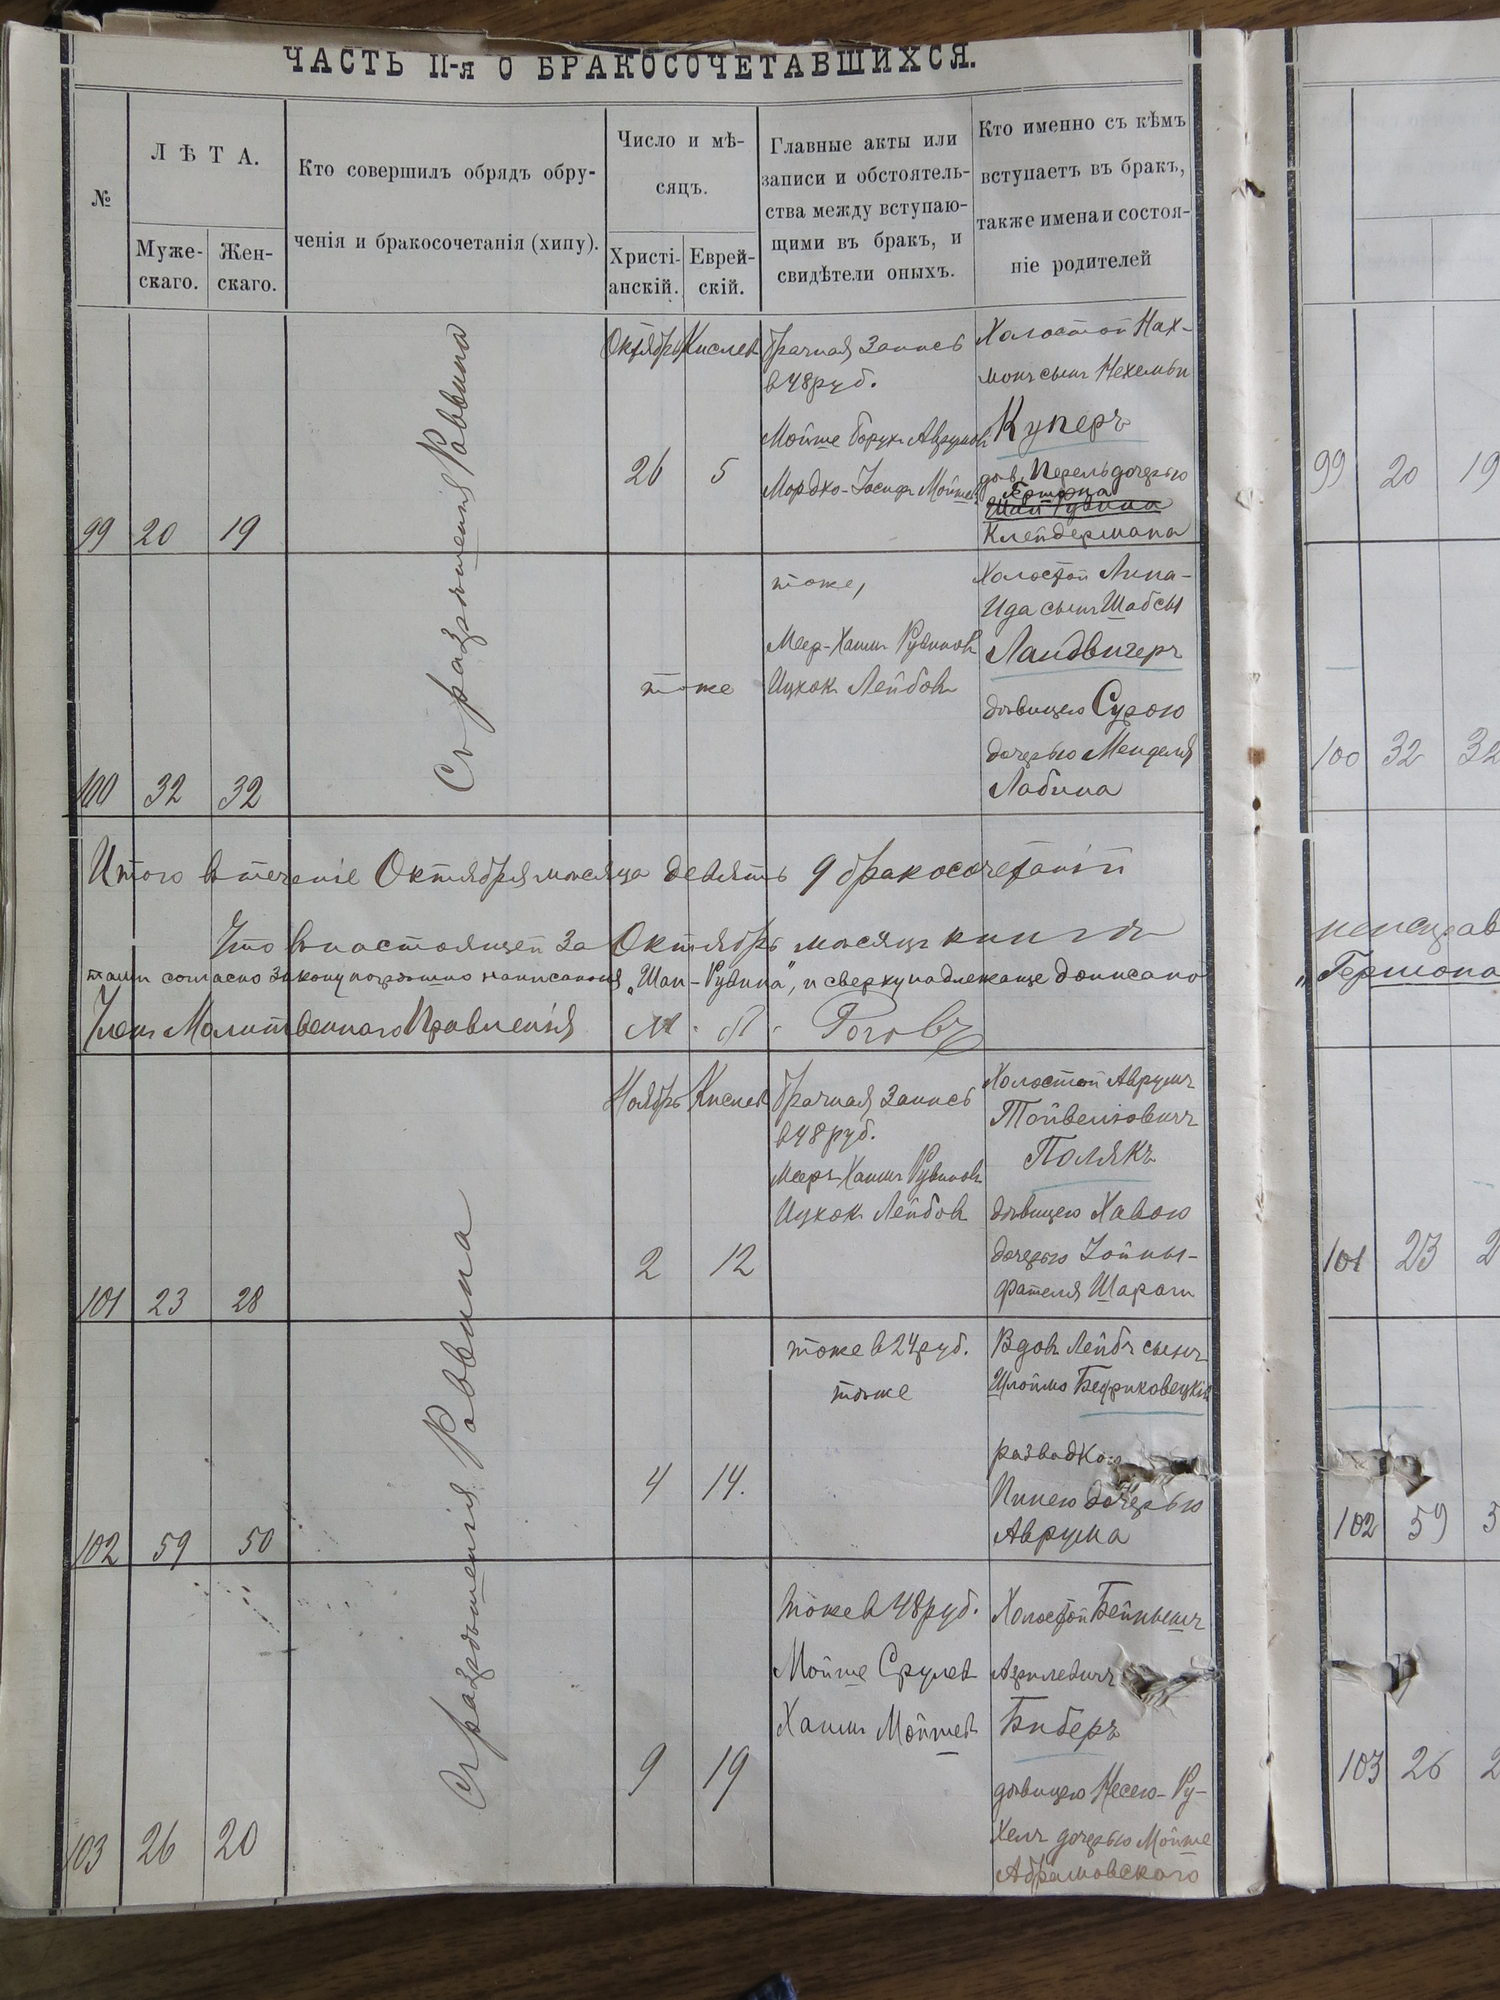 ЧАСТЬ II-я О БРАКОСОЧЕТАВШИХСЯ.
№
ЛѢТА.
Муже-
скаго.
Жен-
скаго.
Кто совершилъ обрядъ обру-
ченія и бракосочетанія (хипу).
Число и мѣ-
сяцъ.
Христі-
анскій.
Еврей-
скій.
Главные акты или
записи и обстоятель-
ства между вступаю-
щими въ бракъ, и
свидѣтели оныхъ.
Кто именно съ кѣмъ
вступаетъ въ бракъ,
также имена и состоя-
ніе родителей
99
20
19
Съ разрѣшенія Раввина
Октябрь
26
Кислев
5
Брачная запись
в 48 руб.
Мойше Борух Аврумов
Мордко-Іосиф Мойшев
Холостой Нах-
ман сын Нехемьи
Куперъ
дев. Перель дочерью
Гершона
Клейдермана
100
32
32
тоже
тоже,
Меер-Хаим Рувинов
Ицхок Лейбов
Холостой Липа-
Ида сын Шабсы
Ландвигеръ
дѣвицею Сурою
дочерью Менделя
Лабина
Итого в теченіе Октября мѣсяца девять 9 бракосочетаній
Что в настоящей за Октябрь мѣсяцъ книгѣ
согласно закону написанія „Шаи-Рувина", и сверху надлежаще дописано
Член Молитвеннаго Правленія М. Я. Роговъ
101
23
28
Съ разрѣшенія Раввина
Ноябрь
2
Кислев
12
Брачная запись
в 48 руб.
Меер Хаим Рувинов
Ицхок Лейбов
Холостой Аврумъ
Тойвелювич
Полякъ
дѣвицею Хавою
дочерью Іойны-
Фателя Шараги
102
59
50
4
14.
тоже в 24 руб.
тоже
Вдов. Лейб сын
Шлоймо
разводкою
дочерью
Аврума
103
26
20
9
19
тоже в 48 руб.
Мойше Срулев
Хаим Мойшев
Холостой Бейнышъ
Азрилевич
Биберъ
дѣвицею Несею-Ру-
хель дочерью Мойше
Абрамовского
99 20 19
100 32 32
„Гершона
101 23 2
102 59 5
103 26 2